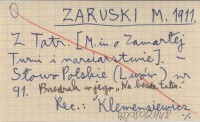 ZARUSKI M. 1911.
Z Tatr. [M.in. o Zamarłej
Turni i narciarstwie]. –
Słowo Polskie (Lwów) nr
41. Przedruk w jego „Na bezdr. tatrz."
Rec.: Klemensiewicz